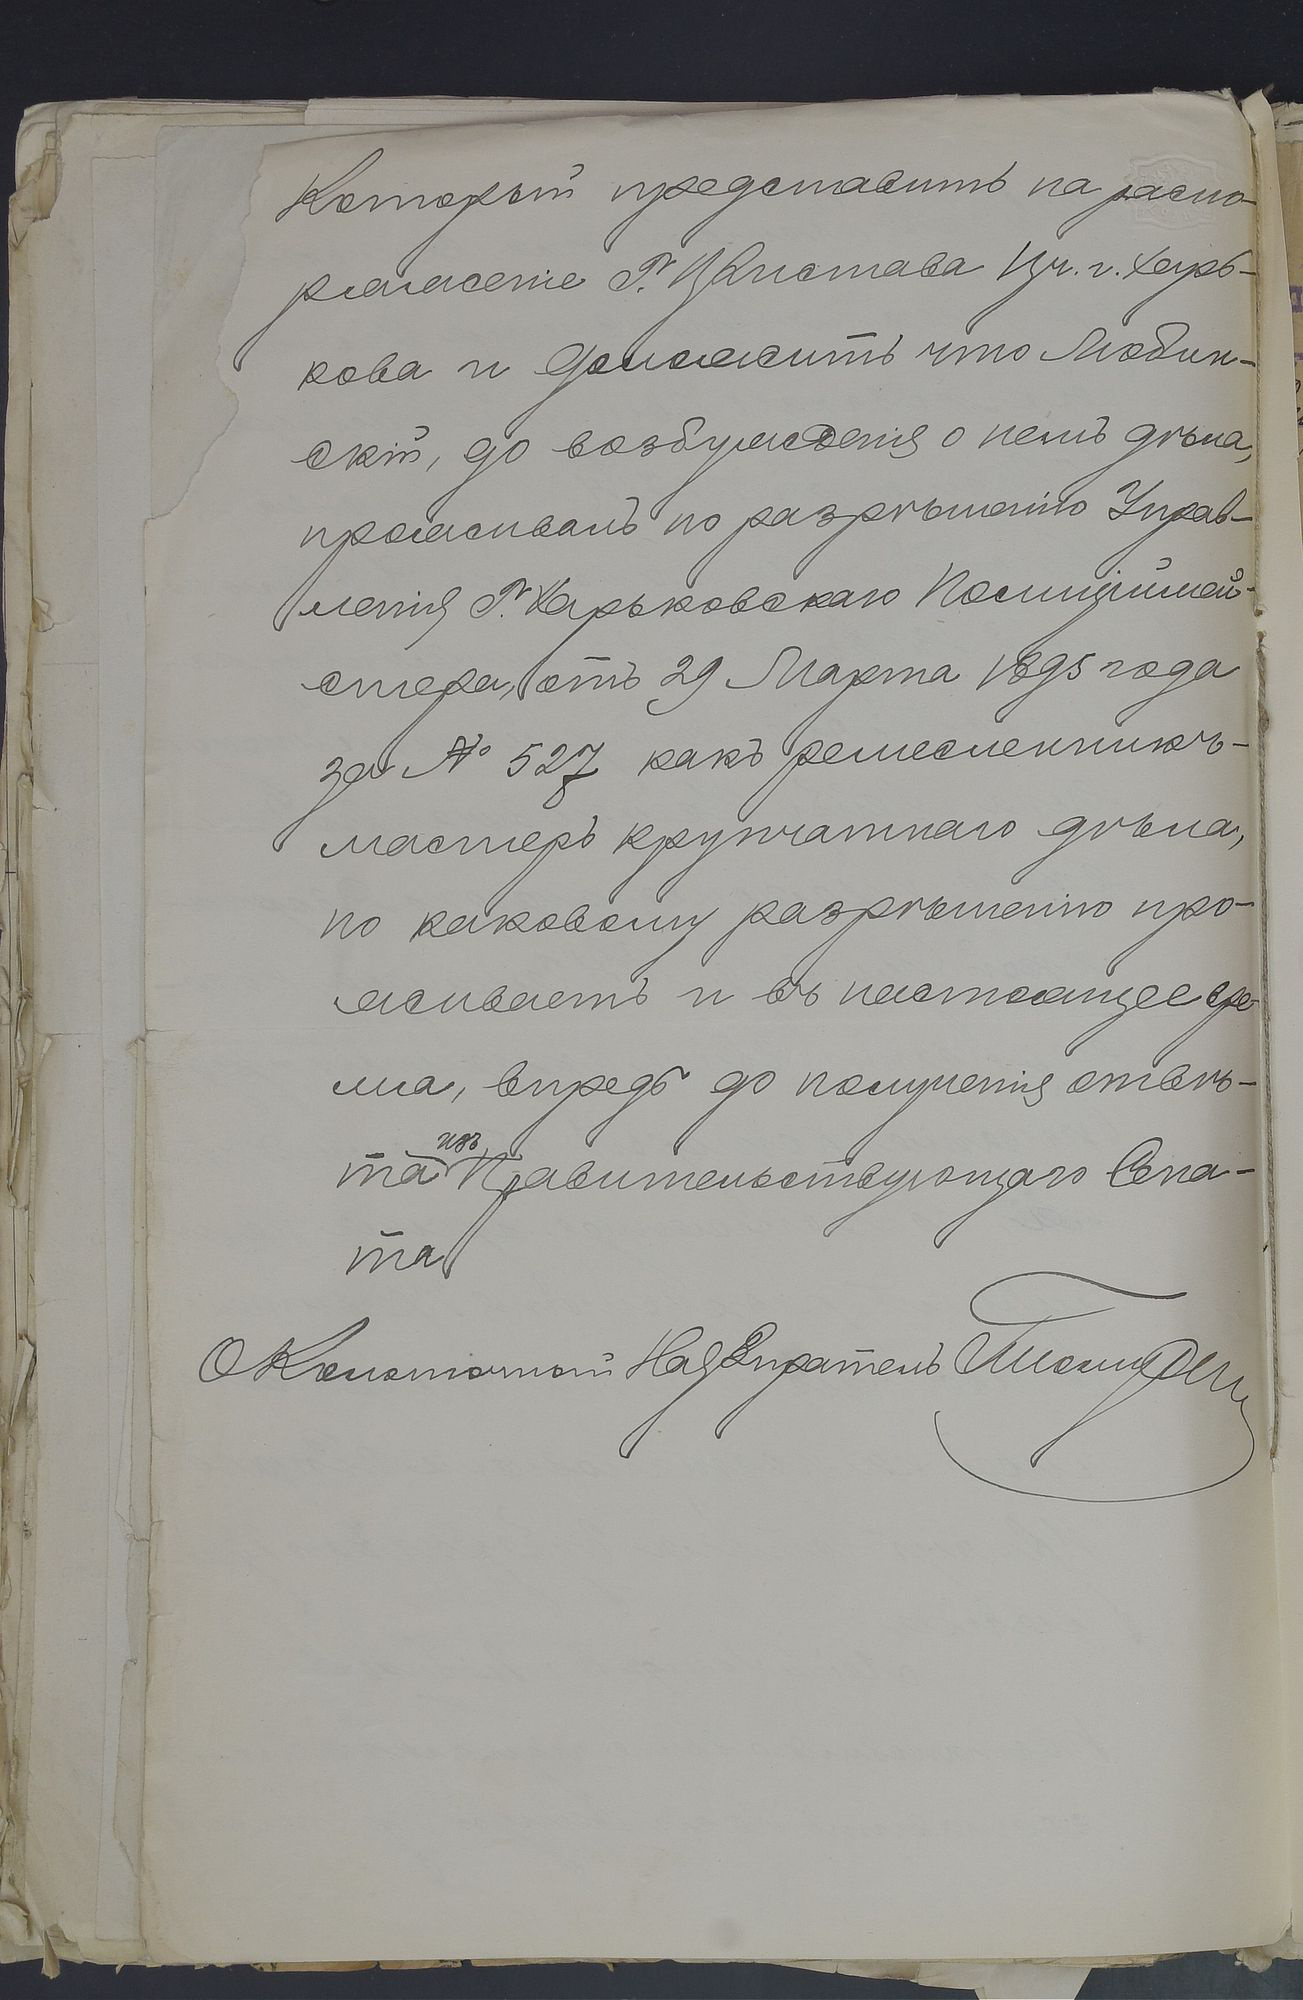 Который представить на распо-
ряженіе Г. Пристава 1 уч. г. Харь-
кова и доложить что Любин-
скій, до возбужденія о немъ дѣла,
проживалъ по разрѣшенію Управ-
ленія Г. Харьковскаго Полиціймей-
стера, отъ 29 Марта 1895 года
за № 527 какъ ремесленникъ-
мастеръ крупчатнаго дѣла,
по каковому разрѣшенію про-
живаетъ и въ настоящее вре-
мя, впредь до полученія отвѣ-
та изъ Правительствующаго Сена-
та
Околоточный Надзиратель